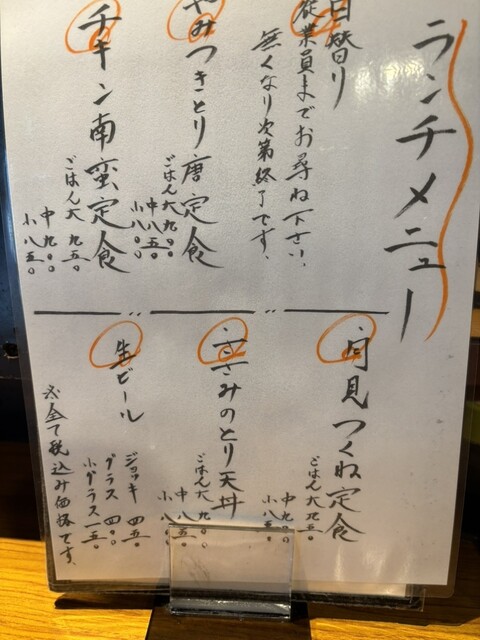 ランチメニュー
日替り
従業員までお尋ね下さい、
無くなり次第終了です。
やみつきとり唐定食
ごはん大 九〇〇
中 八五〇
小 八〇〇
チキン南蛮定食
ごはん大 九五〇
中 九〇〇
小 八五〇
月見つくね定食
ごはん大 九五〇
中 九〇〇
小 八五〇
ささみのとり天丼
ごはん大 九〇〇
中 八五〇
小 八〇〇
生ビール
ジョッキ 四五〇
グラス 四〇〇
小グラス 一五〇
※全て税込み価格です。